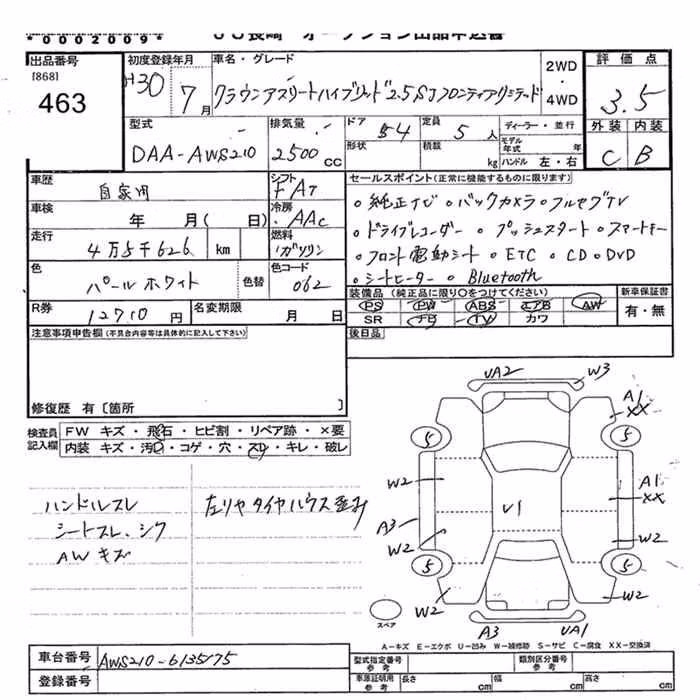 *0002009*
JU長崎 オークション出品申込書
出品番号
[868]
463
初度登録年月
H30 7月
車名・グレード
クラウンアスリートハイブリッド2.5SJフロンティアリミテッド
2WD
・
4WD
評価点
3.5
外装 内装
C B
型式
DAA-AWS210
排気量
2500cc
ドア
54
形状
定員
5人
積載
kg
ディーラー・並行
モデル年式 年
ハンドル 左・右
車歴
自家用
シフト
FAT
車検
年 月( 日)
冷房
AAC
走行
4万5千626 km
燃料
ガソリン
色
パールホワイト
色替
色コード
062
R券
12710円
名変期限
月 日
セールスポイント(正常に機能するものに限ります)
○純正ナビ ○バックカメラ ○フルセグTV
○ドライブレコーダー ○プッシュスタート ○スマートキー
○フロント電動シート ○ETC ○CD ○DVD
○シートヒーター ○Bluetooth
装備品(純正品に限り○をつけてください)
PS PW ABS エアB AW
SR TV カワ
新車保証書
有・無
注意事項申告欄(不具合内容等は具体的に記入して下さい)
後日品
修復歴 有〔箇所 〕
検査員記入欄
FW キズ・飛石・ヒビ割・リペア跡・×要
内装 キズ・汚レ・コゲ・穴・スレ・キレ・破レ
ハンドルスレ
シートスレ、シワ
AWキズ
左リヤタイヤハウス歪み
UA2 W3
A1
XX
5 5
W2 A1
XX
U1
A3
W2 W2
5 5
W2 W2
スペア
A3 UA1
A-キズ E-エクボ U-凹み W-補修跡 S-サビ C-腐食 XX-交換済
車台番号
AWS210-6135175
登録番号
型式指定番号
参考
類別区分番号
参考
車庫証明用
参考
長さ cm
幅 cm
高さ cm